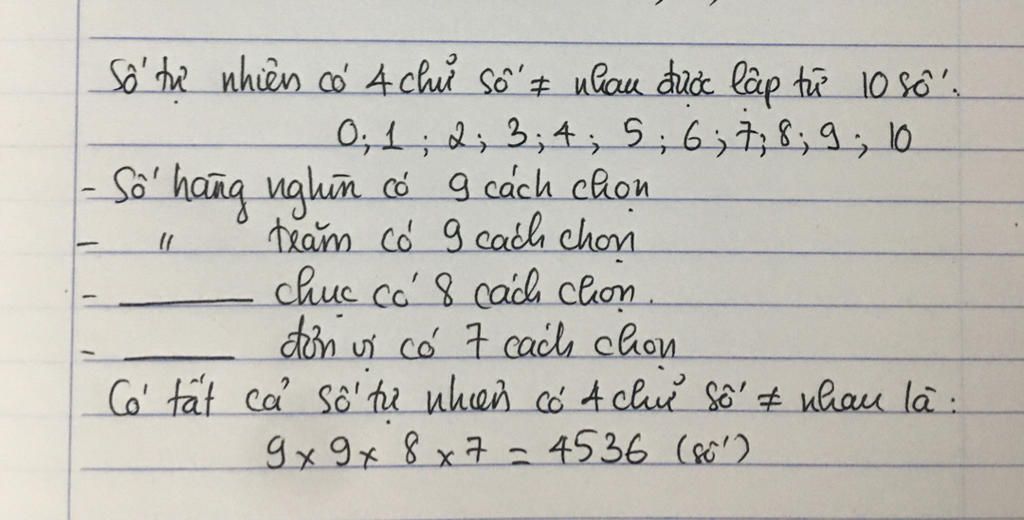 Số tự nhiên có 4 chữ số ≠ nhau được lập từ 10 số:
0; 1; 2; 3; 4; 5; 6; 7; 8; 9; 10
- Số hàng nghìn có 9 cách chọn
- " trăm có 9 cách chọn
- ——— chục có 8 cách chọn.
- ——— đơn vị có 7 cách chọn
Có tất cả số tự nhiên có 4 chữ số ≠ nhau là:
9 x 9 x 8 x 7 = 4536 (số)